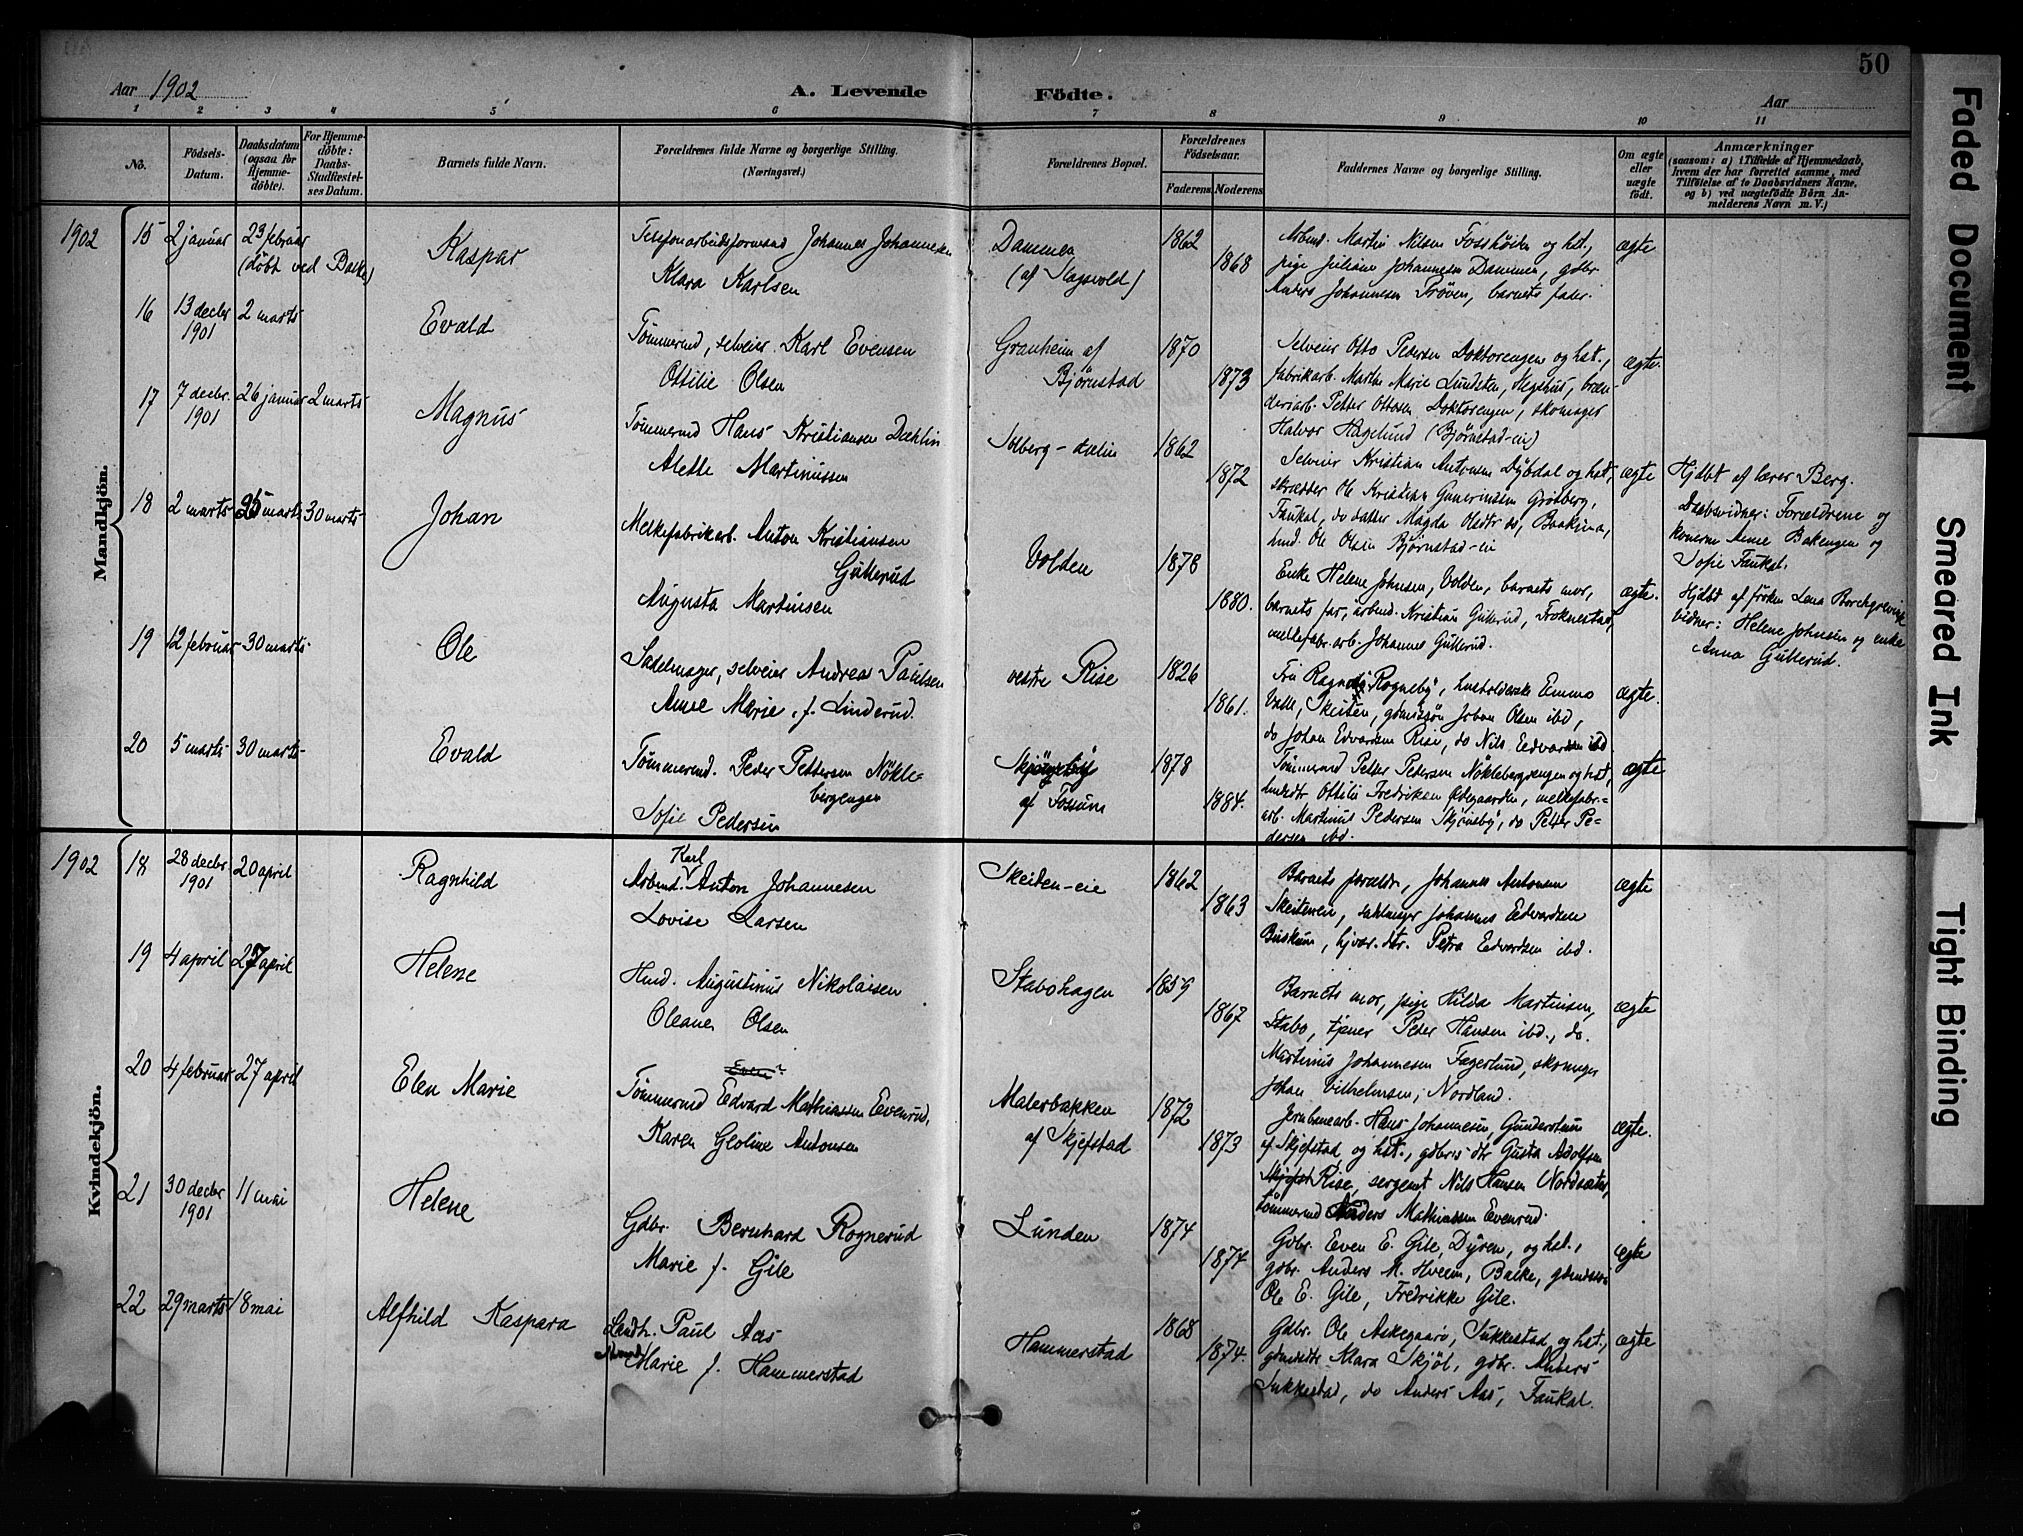 50
Aar 1902
A. Levende Födte.
Aar
1 2 3 4 5 6 7 8 9 10 11
No.
Födsels-
Datum.
Daabsdatum
(ogsaa for
Hjemme-
döbte).
For Hjemme-
döbte:
Daabs-
Stadfæstel-
ses Datum.
Barnets fulde Navn.
Forældrenes fulde Navne og borgerlige Stilling.
(Næringsvei.)
Forældrenes Bopæl.
Forældrenes
Födselsaar.
Faderens Moderens
Faddernes Navne og borgerlige Stilling.
Om ægte
eller
uægte
födt.
Anmærkninger
(saasom: a) i Tilfælde af Hjemmedaab,
hvem der har forrettet samme, med
Tilföielse af to Daabsvidners Navne,
og b) ved uægtefödte Börn An-
melderens Navn m. V.)
Mandkjön.
1902 15 2 januar 23 februar
(döbt ved Balke)
Kaspar
Telefonarbeidsformand Johannes Johannesen
Klara Karlsen
Dammen
(af Slagsvold)
1862
1868
Arbmd. Martin Nilsen Fosshöiden og hst.,
pige Juliane Johannesen Dammen, gdbr.
Anders Johannesen Pröven, barnets fader.
ægte
16 13 decbr 2 marts
1901
Evald
Tömmermd, selveier Karl Evensen
Ottilie Olsen
Granheim af
Björnstad
1870
1873
Selveier Otto Pedersen Doktorengen og hst.,
fabrikarb. Marthe Marie Lundsten, Hegshus, bræn-
deriarb. Petter Ottosen Doktorengen, skomager
Halvor Hagelund (Björnstad-eie)
ægte.
17 7 decbr. 26 januar 2 marts
1901
Magnus
Tömmermd Hans Kristiansen Dæhlin
Alette Martinussen
Solberg-dælin
1862
1872
Selveier Kristian Antonsen Dybdal og hst,
skrædder Ole Kristian Gunerinssen Grötberg,
Faukal, do datter Magda Olsdtr do, Baakind,
hmd. Ole Olsen Björnstad-eie
ægte
Hjdbt af lærer Berg.
Daabsvidner: Forældrene og
konerne Anne Bakengen og
Sofie Faukal.
18 2 marts 25 marts 30 marts
Johan
Melkefabrikarb. Anton Kristiansen
Gullerud
Augusta Martinsen
Volden
1878
1880.
Enke Helene Johnsen, Volden, barnets mor,
barnets far, arbmd. Kristian Gullerud, Froknestad,
melkefabr.arb. Johannes Gullerud.
ægte.
Hjdbt af fröken Lena Borchgrevink
vidner: Helene Johnsen og enke
Anna Gullerud.
19 12 februar 30 marts
Ole
Sadelmager, selveier Andreas Paulsen
Anne Marie, f. Linderud.
vestre Rise
1826
1861.
Fru Ragnh. Rogneby, husholderske Emma
Valle, Skeiten, gdmdssön Johan Olsen ibd,
do Johan Edvardsen Rise, do Nils Edvardsen ibd
ægte.
20 5 marts 30 marts
Evald
Tömmermd. Peder Pettersen Nökle-
bergengen
Sofie Pedersen
Skjöneby
af Fossum
1878
1884.
Tömmermd Petter Pedersen Nöklebergengen og hst,
hmdsdtr Ottilie Fredriksen Ödegaarden, melkefabr.=
arb. Martinus Pedersen Skjöneby, do Petter Pe=
dersen ibd.
ægte
Kvindekjön.
1902 18 28 decbr 20 april
1901
Ragnhild
Karl
Arbmd. Anton Johannesen
Lovise Larsen
Skeiten-eie
1862
1863
Barnets forældre, Johannes Antonsen
Skeiteneie, sadelmager Johannes Edvardsen
Buskum, hjvær. dtr. Petra Edvardsen ibd.
ægte
19 4 april 27 april
Helene
Hmd. Augustinus Nikolaisen
Oleane Olsen
Stabohagen
1859
1867
Barnets mor, pige Hilda Martinsen,
Stabo, tjener Peder Hansen ibd., do.
Martinus Johannesen Fagerlund, skomager
Johan Vilhelmsen, Nordland.
ægte
20 4 februar 27 april
Elen Marie
Even
Tömmermd Edvard Mathiassen Evenrud,
Karen Geoline Antonsen
Malerbakken
af Skjefstad
1872
1873
Jernbanearb. Hans Johannesen, Gunderstuen
af Skjefstad og hst., gdbrs-dtr Gusta Adolfsen
Skjefst Rise, sergeant Nils Hansen Nordsæter,
tömmermd Anders Mathiassen Evenrud.
ægte.
21 30 decbr 11 mai
1901
Helene
Gdbr. Bernhard Rognerud
Marie f. Gile
Lunden
1874
1874.
Gdbr. Even E. Gile, Dyren, og hst.,
gdbr. Anders M. Hveem, Balke, gdmdssön
Ole E. Gile, Fredrikke Gile.
ægte
22 29 marts 18 mai
Alfhild Kaspara
Landh. Paul Aas
Marie f. Hammerstad
Hammerstad
1868
1874.
Gdbr. Ole Askegaard, Sukkestad og hst.,
gdmdsdtr Klara Skjöl, gdbr. Anders
Sukkestad, do Anders Aas, Faukal.
ægte
Faded Document
Smeared Ink
Tight Binding